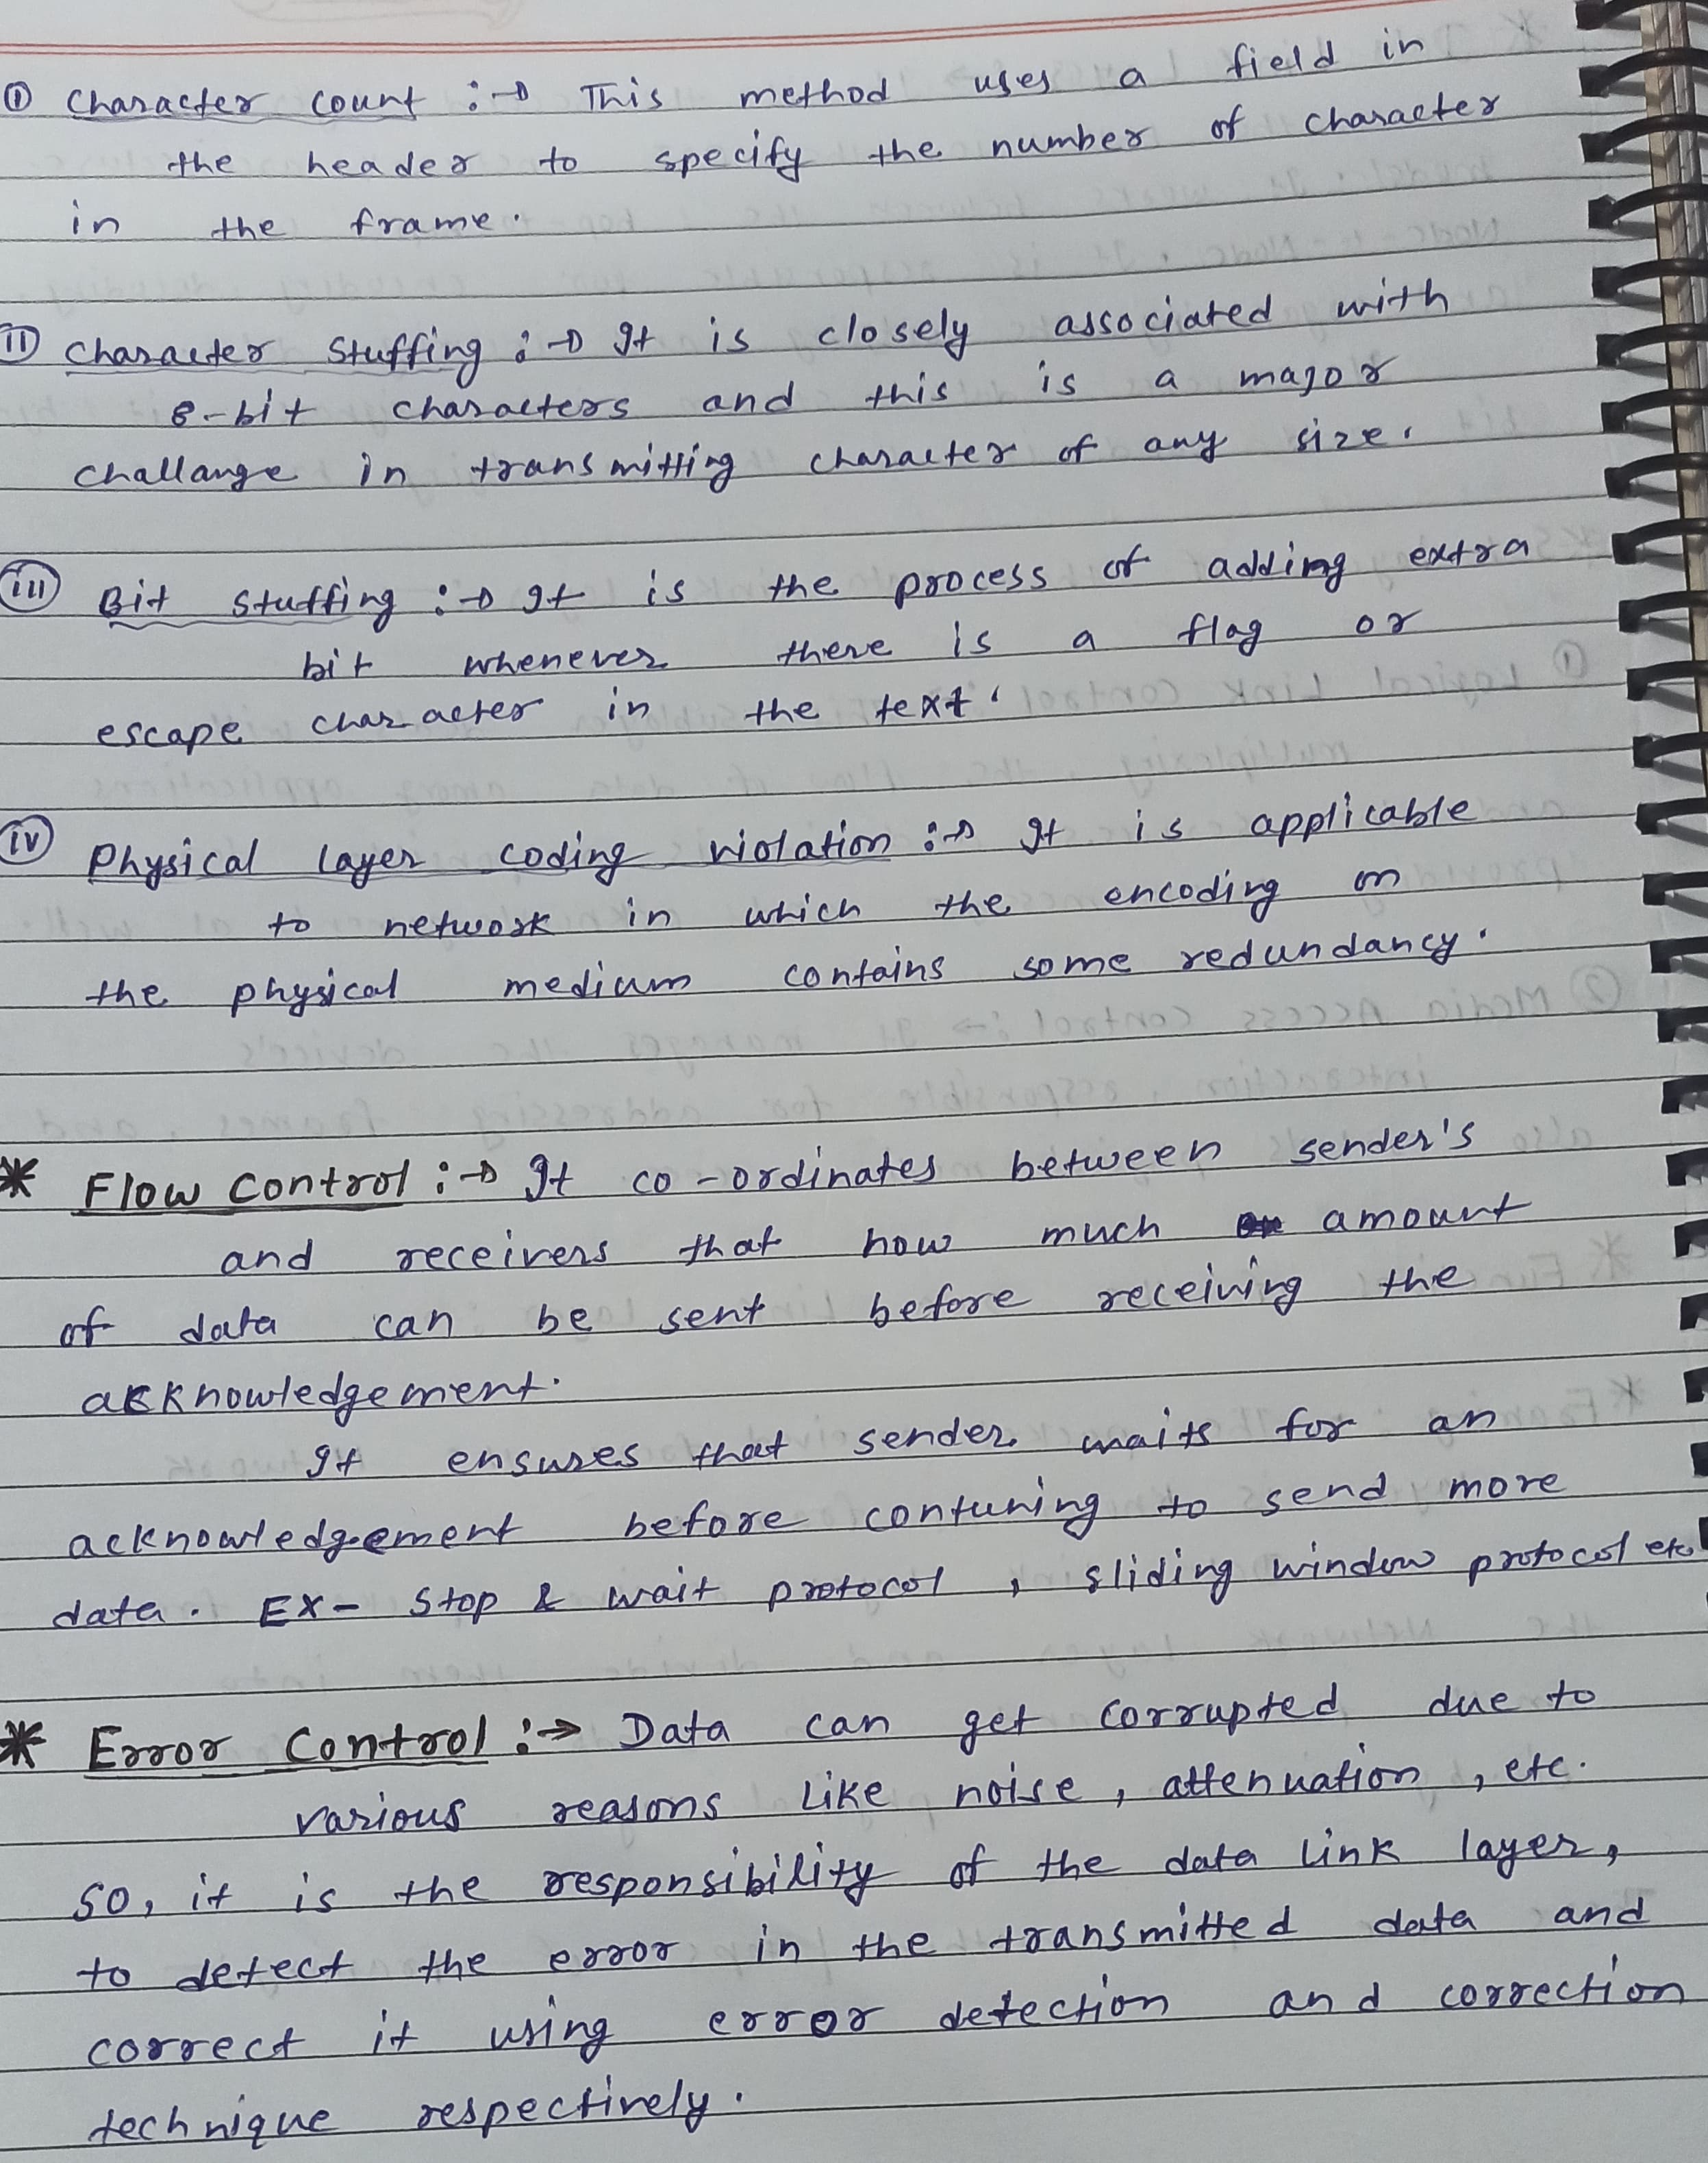 ① Character count :→ This method uses a field in
the header to specify the number of character
in the frame.
ⅱ Character Stuffing :→ It is closely associated with
8-bit characters and this is a major
challange in transmitting character of any size.
ⅲ Bit Stuffing :→ It is the process of adding extra
bit whenever there is a flag or
escape character in the text.
ⅳ Physical layer coding violation :→ It is applicable
to network in which the encoding on
the physical medium contains some redundancy.
* Flow Control :→ It co-ordinates between sender's
and receivers that how much amount
of data can be sent before receiving the
acknowledgement.
It ensures that sender waits for an
acknowledgement before contuning to send more
data. EX- Stop & wait protocol, sliding window protocol etc
* Error Control :→ Data can get corrupted due to
various reasons like noise, attenuation, etc.
so, it is the responsibility of the data link layer,
to detect the error in the transmitted data and
correct it using error detection and correction
technique respectively.